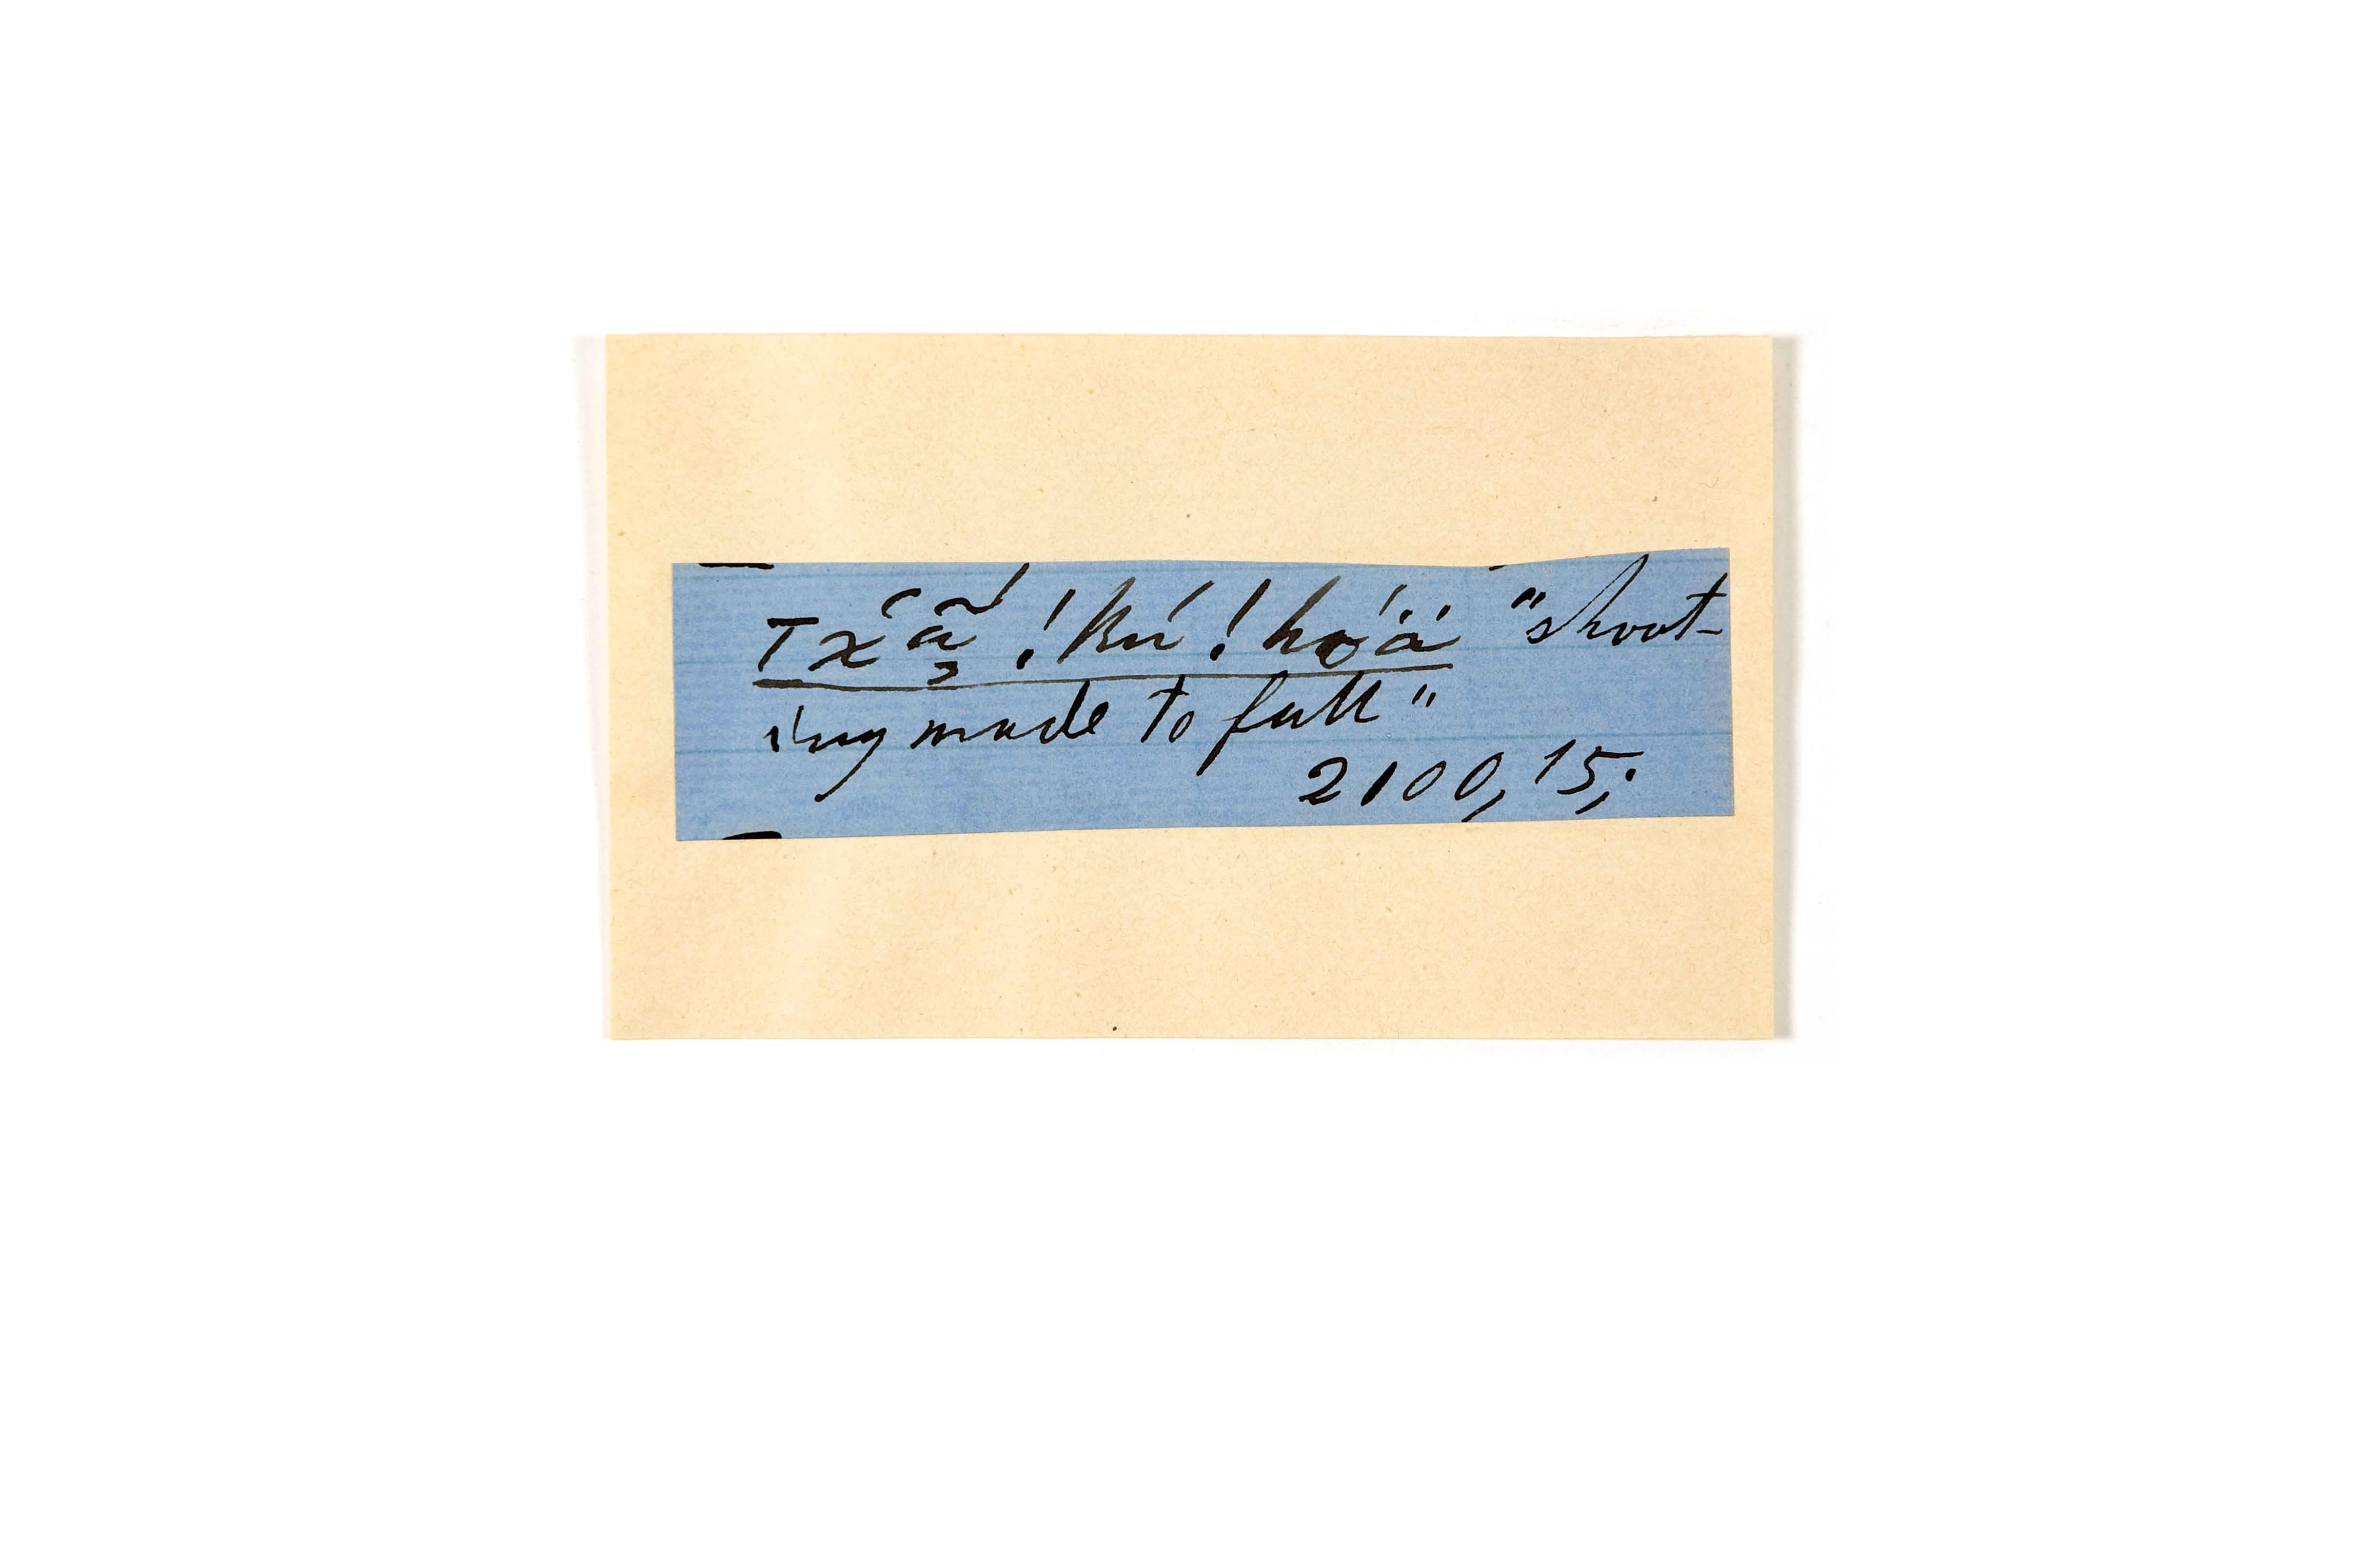 Txʼã̰ !kúʼ!hóʼä "shoot-
ing made to fall"
2100, 15;